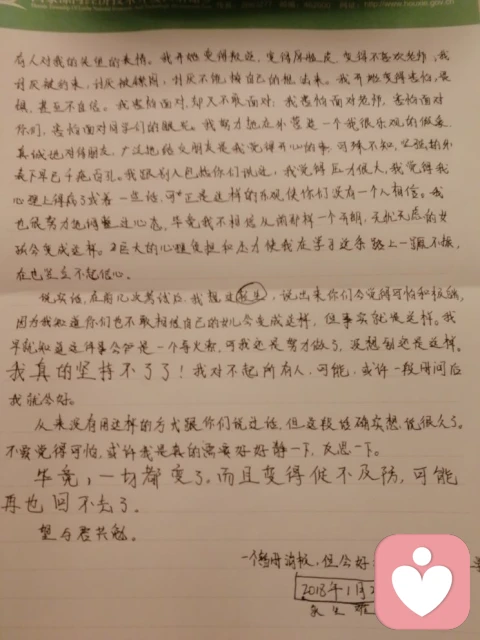 http://www.haueac.gov.cn
有人对我的失望的表情。我开始变得叛逆，变得厚脸皮，变得不喜欢老师，我
讨厌被约束，讨厌被嫌弃，讨厌不能按自己的想法来。我开始变得害怕，畏
惧，甚至不自信。我害怕面对，却又不敢面对；我害怕面对老师，害怕面对
你们，害怕面对同学们的眼光。我努力地在外营造一个我很乐观的假象
真诚地对待朋友，广泛地结交朋友是我觉得开心的事，可殊不知，坚强的外
表下早已千疮百孔。我跟别人包括你们说过，我觉得压力很大，我觉得我
心理上得病了或者一些话，可正是这样的乐观使你们没有一个人相信。我
也很努力地调整过心态，毕竟我不相信从前那样一个开朗，无忧无虑的女
孩会变成这样。巨大的心理负担和压力使我在学习这条路上一蹶不振，
在也建立不起信心。
说实话，在前几次考试后，我想过，说出来你们会觉得可怕和极端，
因为我知道你们也不敢相信自己的女儿会变成这样，但事实就是这样。我
早就知道这件事会是一个导火索，可我还是努力做了，没想到还是这样。
我真的坚持不了了！我对不起所有人，可能，或许一段时间后
我就会好。
从来没有用这样的方式跟你们说过话，但这段话确实想说很久了。
不要觉得可怕，或许我是真的需要好好静一下，反思一下。
毕竟，一切都变了，而且变得促不及防，可能
再也回不去了。
望与君共勉。
一个暂时消极，但会好
2018年1月2